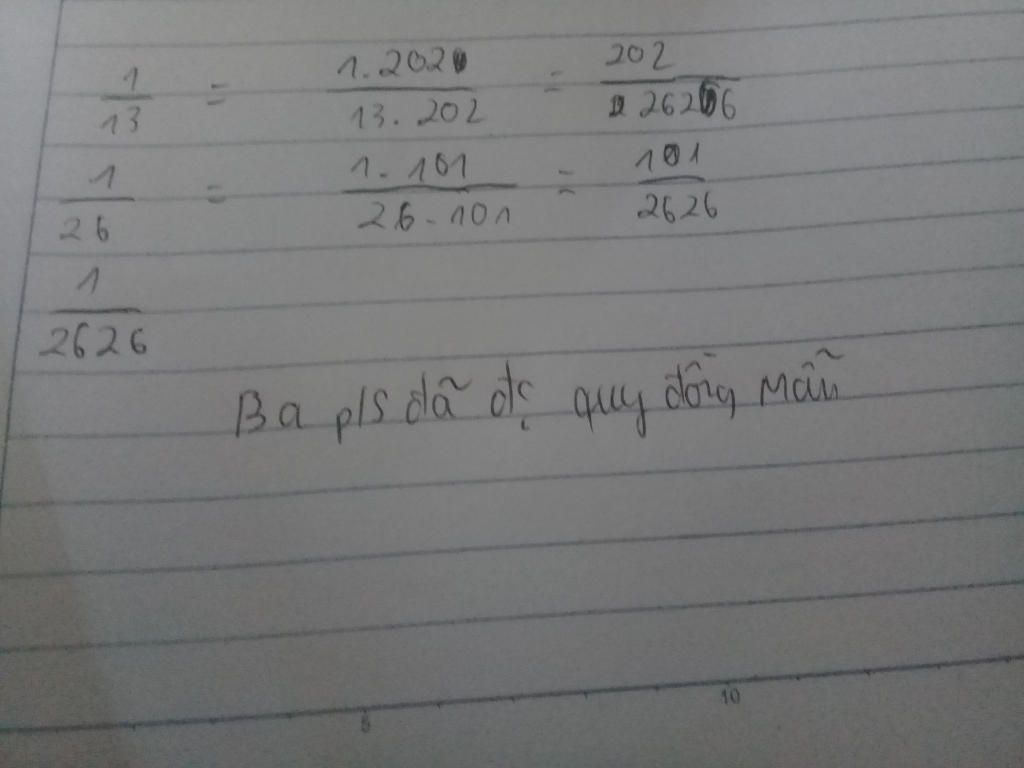 1/13 = 1.202/13.202 = 202/2626
1/26 = 1.101/26.101 = 101/2626
1/2626
Ba p/S đã đc quy đồng mẫu
5 10